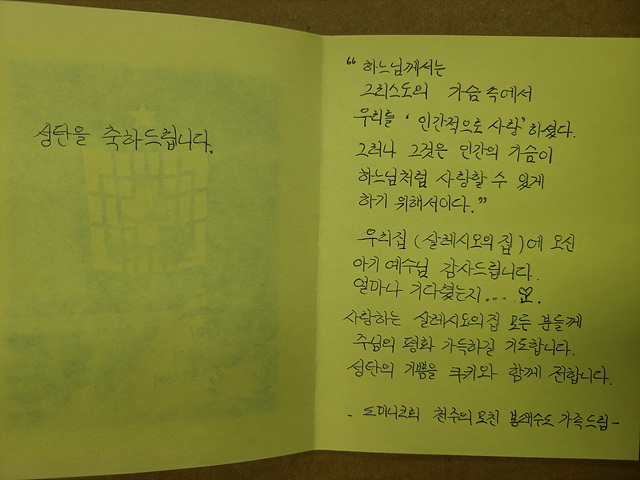 성탄을 축하드립니다.
“ 하느님께서는
그리스도의 가슴 속에서
우리를 ‘인간적으로 사랑’하셨다.
그러나 그것은 인간의 가슴이
하느님처럼 사랑할 수 있게
하기 위해서이다.”
우리집 (살레시오의 집)에 오신
아기 예수님 감사드립니다.
얼마나 기다렸는지... ♡.
사랑하는 살레시오의 집 모든 분들께
주님의 평화 가득하길 기도합니다.
성탄의 기쁨을 쿠키와 함께 전합니다.
- 도미니코회 천주의 모친 봉쇄수도 가족드림 -